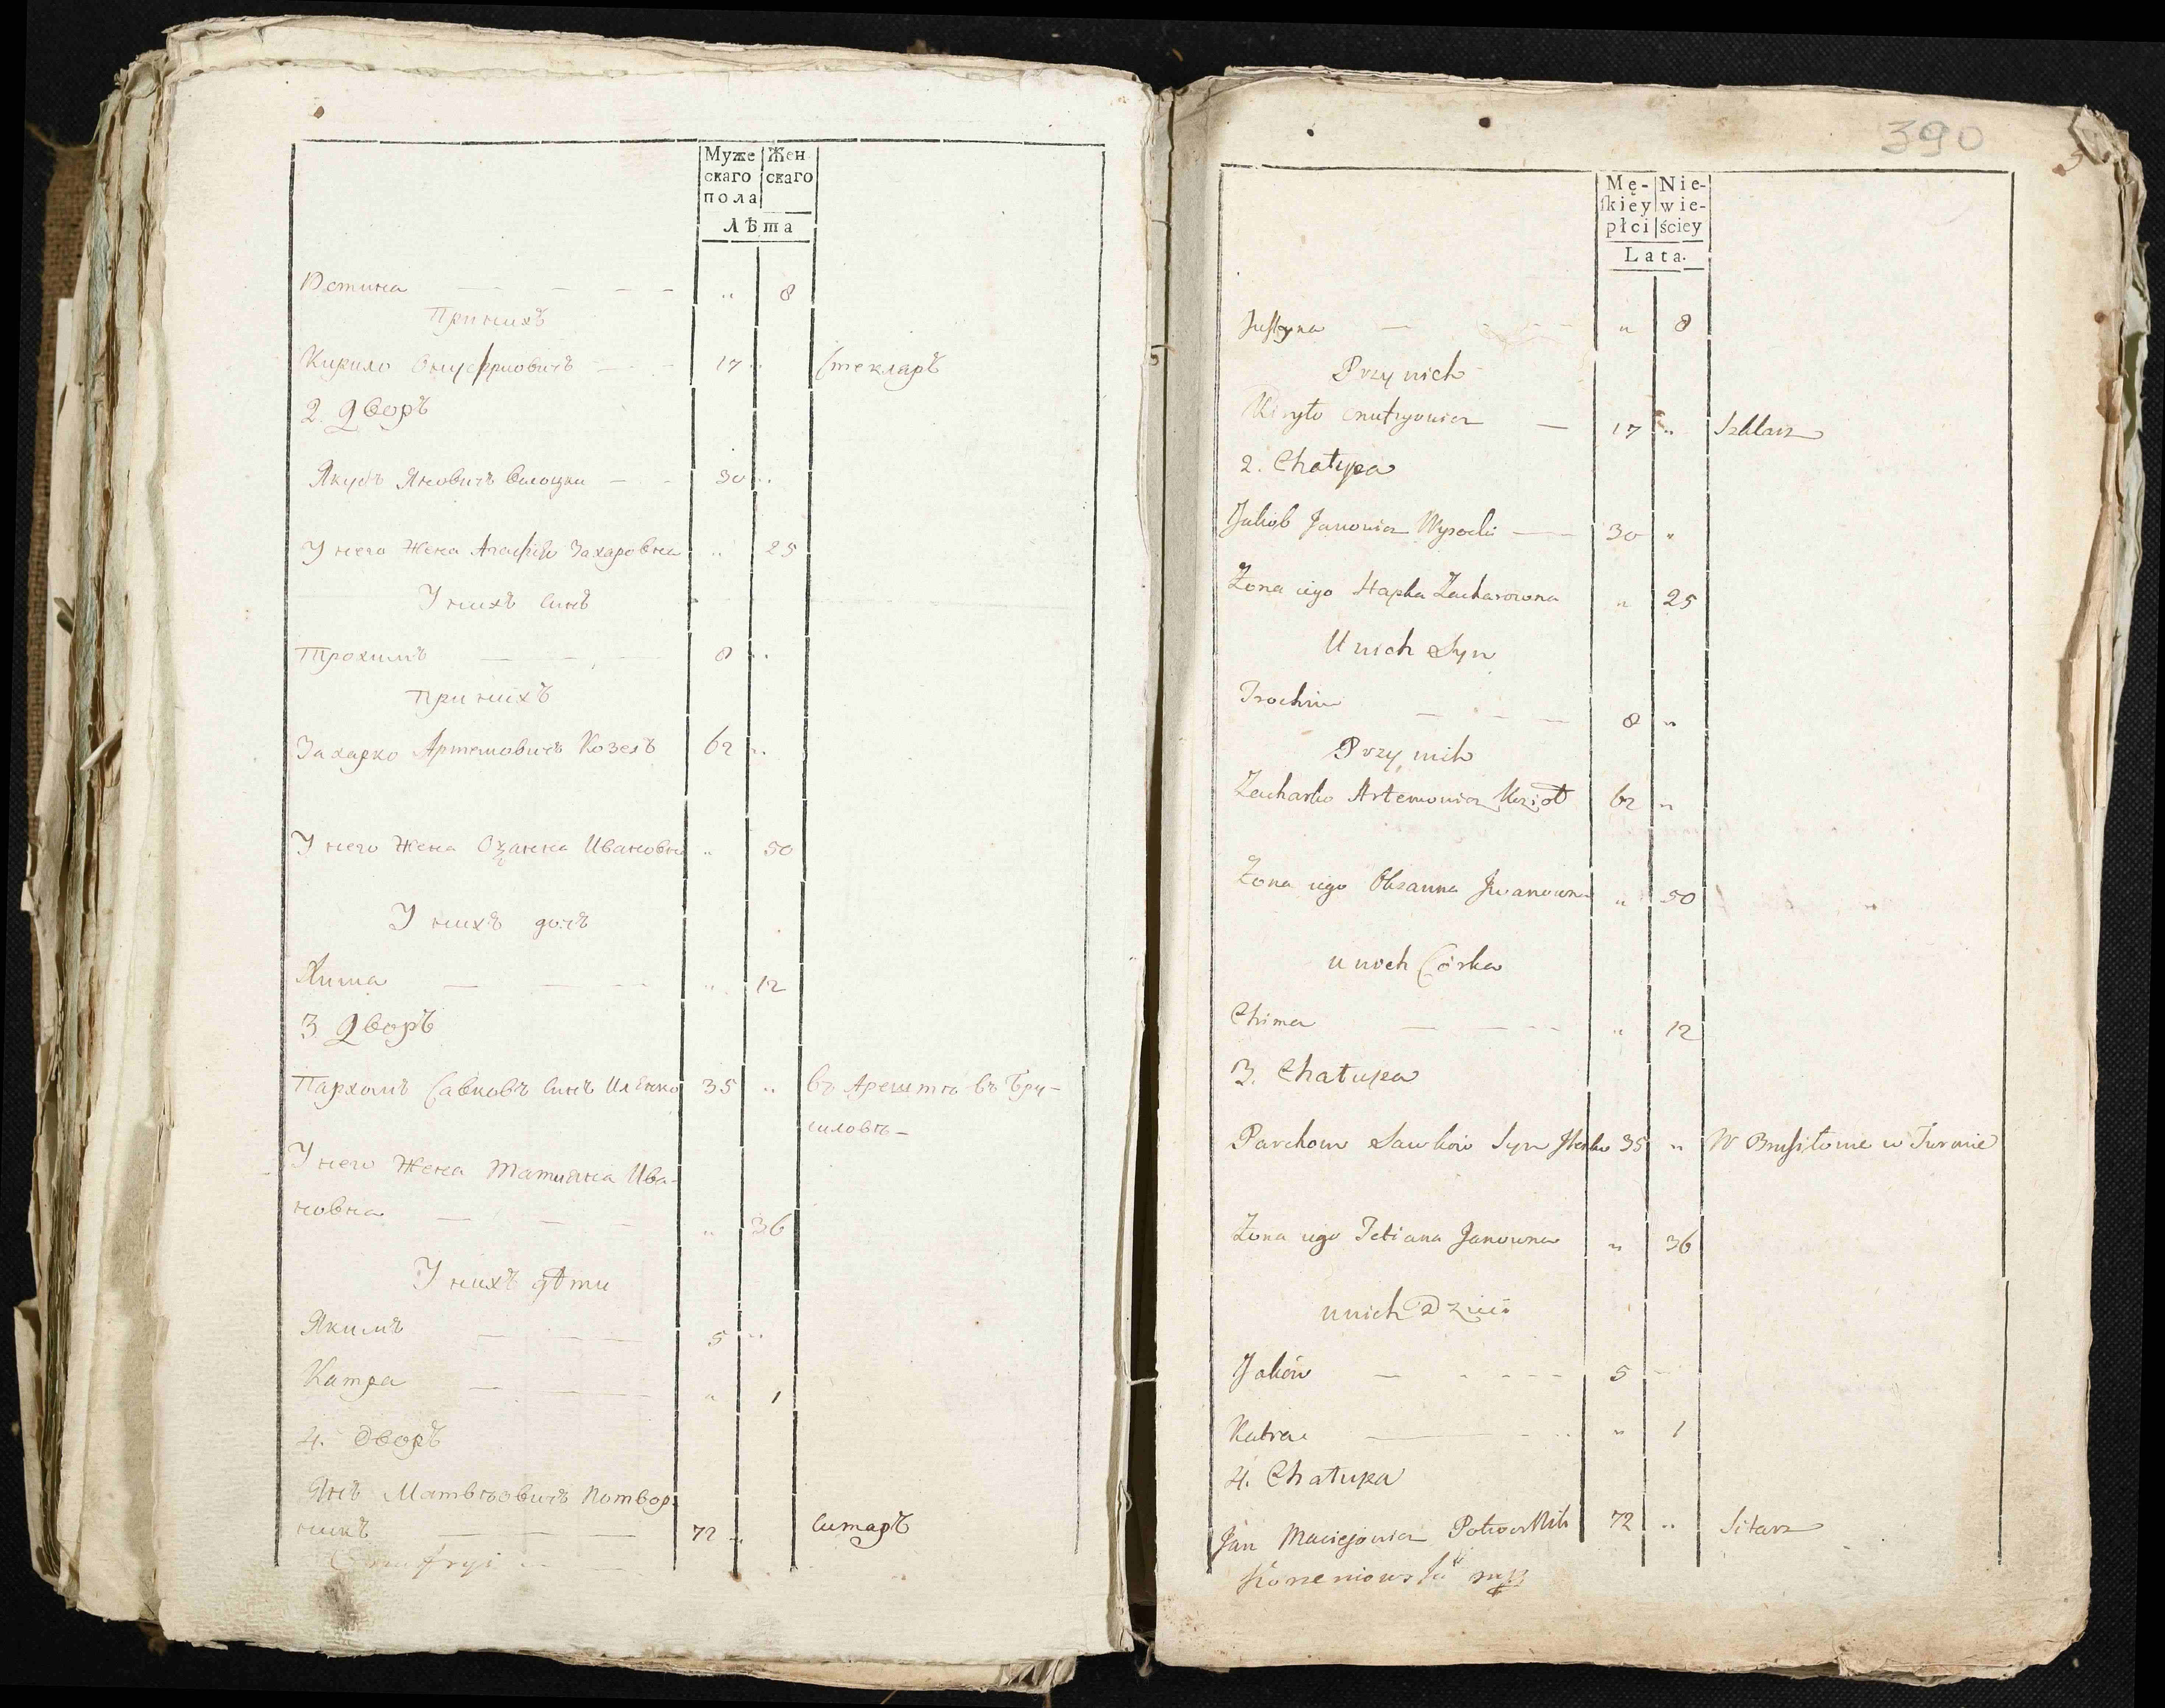 Муже Жен
скаго скаго
пола
Лѣта
Юстина — — — — „ 8
При нихъ
Кирило Онуфриовичъ — — 17 „ Стекларъ
2. Дворъ
Якубъ Яновичъ Висоцки — — 30 „
У него Жена Агафiя Захаровна „ 25
У нихъ Синъ
Трохимъ — — — 8 „
При нихъ
Захарко Артемовичъ Козелъ 62 „
У него Жена Оѯанна Ивановна „ 50
У нихъ дочъ
Хима — — — „ 12
3 Дворъ
Пархомъ Савковъ Синъ Илѣнко 35 „ въ Арештѣ въ Бру-
силовѣ –
У него Жена Татияна Ива-
новна — — — „ 36
У нихъ дѣти
Якимъ — — — 5 „
Катра — — — „ 1
4. Дворъ
Янъ Матвѣовичъ Потвор-
никъ — — — 72 „ Ситаръ
Onufryi
390
Mę- Nie-
skiey wie-
płci ściey
Lata.
Justyna — — — „ 8
Przy nich
Kiryło Onufryowicz — 17 „ Szklarz
2. Chałupa
Jakób Janowicz Wysocki — 30 „
Żona iego Hapka Zacharowna „ 25
U nich Syn
Trochim — — — 8 „
Przy nich
Zacharko Artemowicz Kozioł 62 „
Żona iego Oksanna Jwanowna „ 50
u nich Córka
Chima — — — „ 12
3. Chałupa
Parchom Sawków Syn Jlenko 35 „ W Brusiłowie w Turmie
Żona iego Tetiana Janowna „ 36
u nich Dzieci
Jakim — — — 5 „
Katra — — „ 1
4. Chałupa
Jan Maciejowicz Potwornik 72 „ Sitarz
Korzeniowski mp